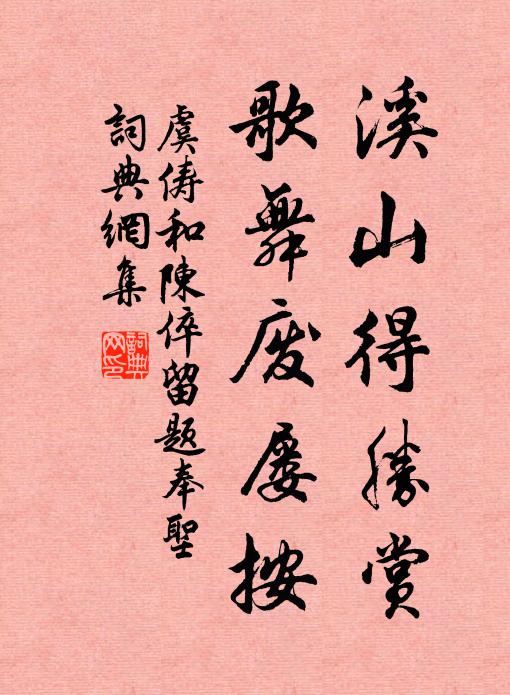 溪山得勝賞
歌舞廢屡按
虞儔和陳倅留題奉聖
詞典網集
詞典网印